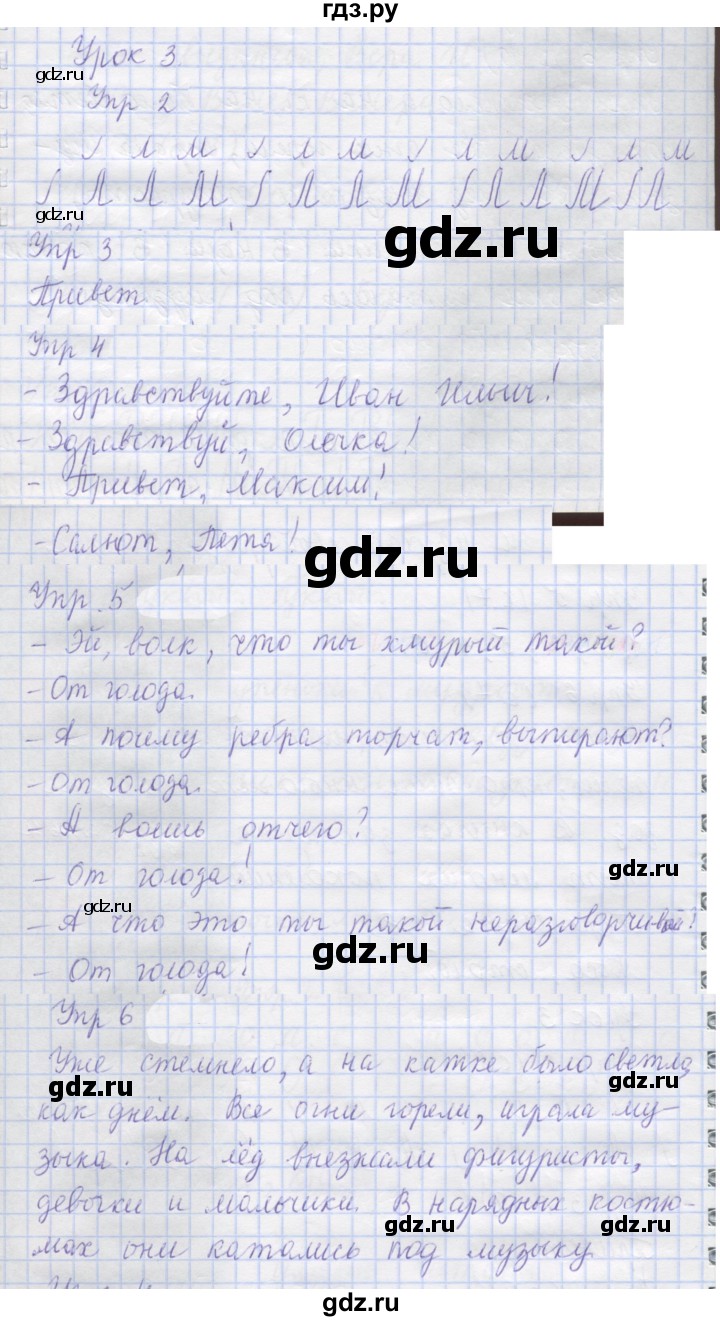 гдз.ру
Урок 3
gdz.ru
Упр 2
л м л л м л л м л л м
Л Л М Л Л М Л Л М Л
gdz.ru
gdz.ru
Упр 3
Привет
Упр 4
- Здравствуйте, Иван Ильич!
- Здравствуй, Олечка!
- Привет, Максим!
- Салют, Петя!
gdz.ru
Упр. 5
- Эй, волк, что ты хмурый такой?
- От голода.
- А почему ребра торчат, выпирают?
- От голода.
- А воешь отчего?
gdz.ru
- От голода!
gdz.ru
- А что это ты такой неразговорчивый?
gdz.ru
- От голода!
Упр 6
Уже стемнело, а на катке было светло,
gdz.ru
gdz.ru
как днём. Все огни горели, играла му-
зыка. На лёд выезжали фигуристы,
девочки и мальчики. В нарядных костю-
gdz.ru
gdz.ru
мах они катались под музыку.
gdz.ru